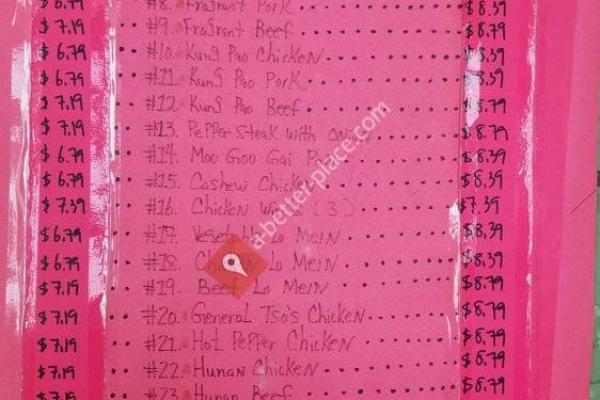 $6.79 .. #8. Fragrant Pork $8.39
$7.19 .. #9. Fragrant Beef $8.79
$6.79 .. #10. Kung Pao Chicken $8.39
$6.79 .. #11. Kung Pao Pork $8.39
$7.19 .. #12. Kung Pao Beef $8.79
$7.19 .. #13. Pepper Steak with $8.79
$6.79 .. #14. Moo Goo Gai $8.39
$6.79 .. #15. Cashew Chicken $8.39
$7.39 .. #16. Chicken Wings (3) $7.39
$6.79 .. #17. Vegetable Lo Mein $8.39
$6.79 .. #18. Chicken Lo Mein $8.39
$7.19 .. #19. Beef Lo Mein $8.79
$7.19 .. #20. General Tso's Chicken $8.79
$7.19 .. #21. Hot Pepper Chicken $8.79
$7.19 .. #22. Hunan Chicken $8.79
$7.19 .. #23. Hunan Beef $8.79
a-better-place.com